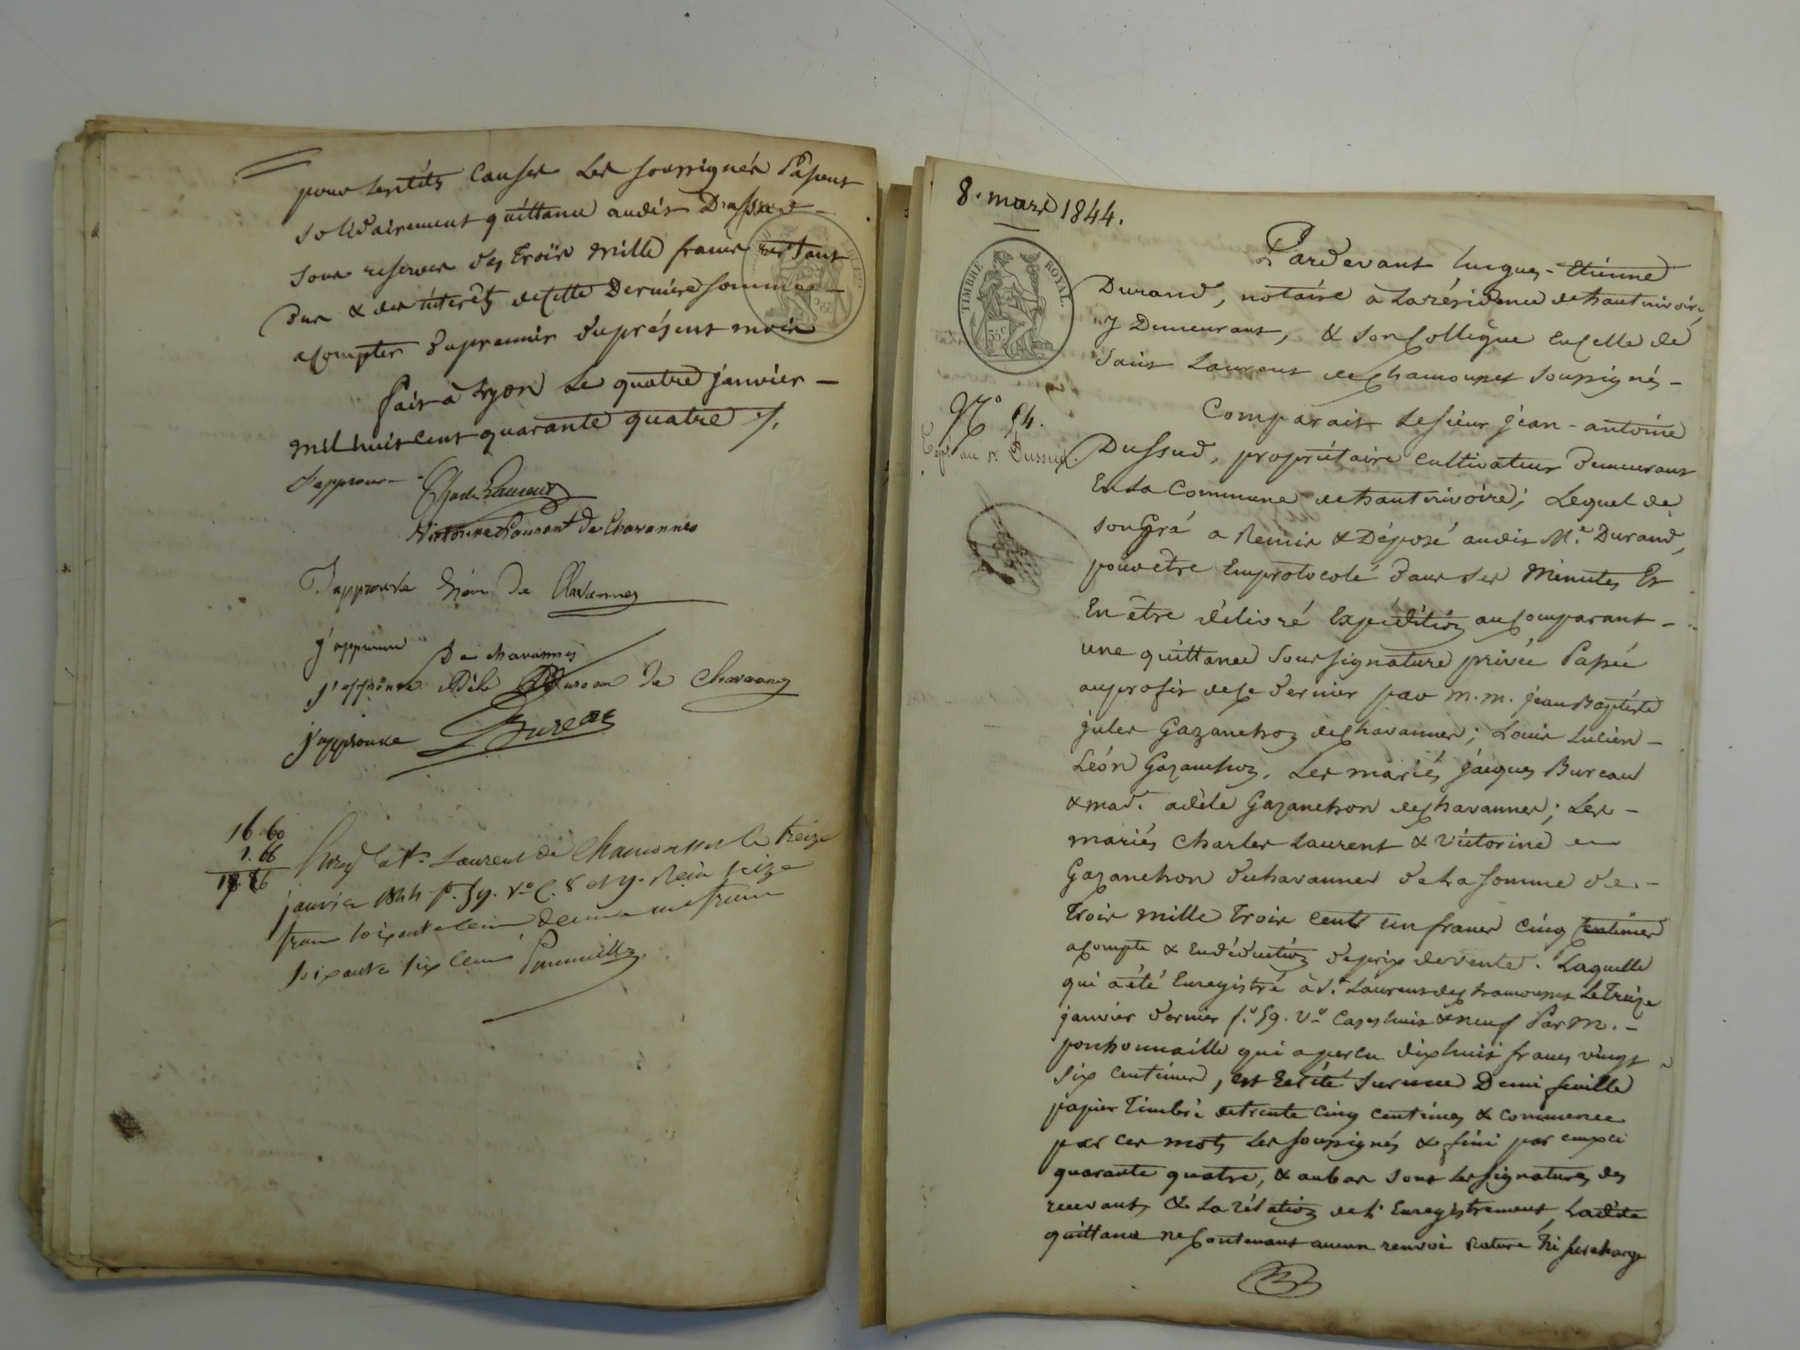 pour lesdites causes les soussignés Passent
solidairement quittance audit Dussud
sous reserves des trois mille francs restant
dus & des interêts de cette Derniere somme
acompter du premier du présent mois
fait à Lyon le quatre janvier
mil huit cent quarante quatre
J'approuve Charles Laurent
Victorine Laurent De Chavannes
J'approuve Léon De Chavannes
j'approuve De chavannes
j'approuve Adèle Bureau de Chavannes
j'approuve Bureau
16 60
1. 66
18. 26
Laurent de Chamousset le treize
janvier 1844 f° 59. V° C. 8 et 9. Reçu seize
francs soixante cent. décime un franc
soixante six cent.
8. mars 1844.
TIMBRE ROYAL.
35 c
N° 54.
Expé au sr. Dussud.
Pardevant Jucques-Etienne
Durand, notaire à la résidence de hauterivoire,
y Demeurant, & son Collègue en celle de
Saint Laurent de Chamousset soussignés
Comparait le sieur jean-antoine
Dussud, propriétaire cultivateur demeurant
En la Commune de hauterivoire; Lequel de
son Gré a Remis & Déposé audit Me. Durand,
pour être Emprotocolé dans ses Minutes Et
En être délivré Expédition au Comparant
une quittance sous signature privée Passée
au profit de ce dernier par m.m. jean Baptiste
jules Gazanchon de Chavannes; Louis Lucien
Léon Gazanchon, Les mariés jacques Bureau
& mad. adèle Gazanchon de Chavannes; Les
mariés Charles Laurent & Victorine
Gazanchon de Chavannes de la somme de
trois mille trois cent un francs cinq centimes
acompte & En déduction de prix de vente. Laquelle
qui a été Enregistré à St. Laurent de Chamousset Le Treize
janvier dernier f° 59. V° Cases huit & neuf Par M.
ponhonnaille qui a perçu dix huit francs vingt
six centimes, est Ecrite sur une Demi feuille
papier Timbré de trente cinq centimes & commence
par ces mots Les soussignés & fini par
quarante quatre, & au bas sont les signatures des
recevants & La rélation de l'Enregistrement, Ladite
quittance ne Contenant aucun renvoi Rature Ni surcharge